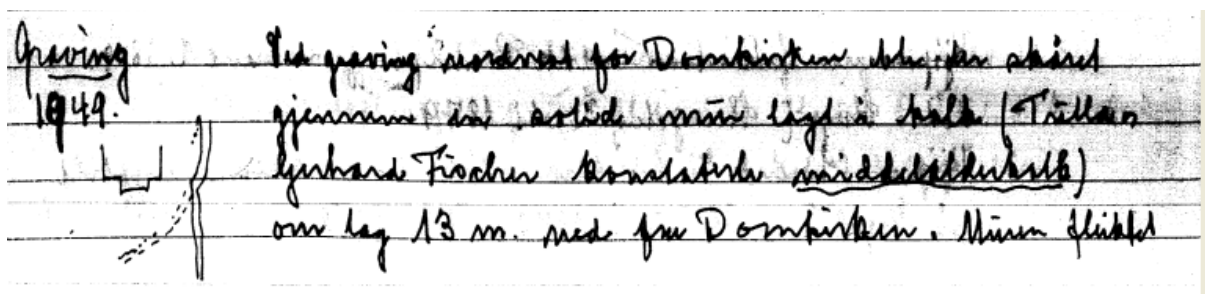 Graving
1949.
Ved graving nordvest for Domkirken ble der skåret
gjennem en solid mur lagt i kalk
Gerhard Fischer konstaterte middelalderkalk)
om lag 13 m. ned fra Domkirken. Muren